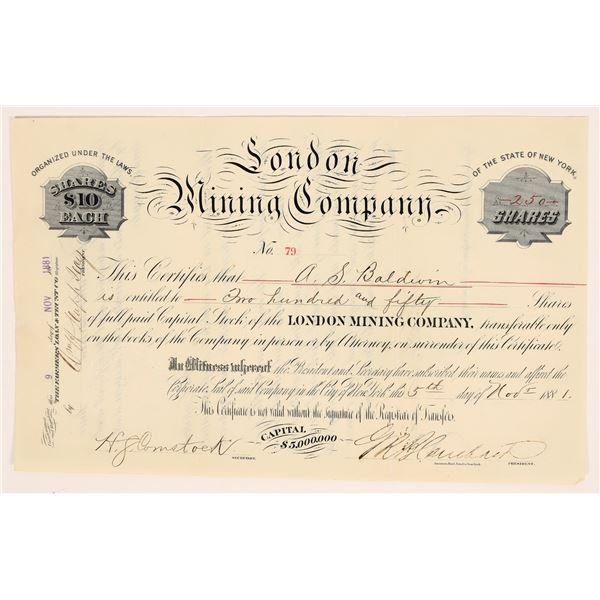 London
Mining Company
ORGANIZED UNDER THE LAWS
OF THE STATE OF NEW YORK.
SHARES
$10
EACH
250
SHARES
No. 79
This Certifies that A. S. Baldwin
is entitled to Two hundred and fifty Shares
of full paid Capital Stock of the LONDON MINING COMPANY, transferable only
on the books of the Company in person or by Attorney, on surrender of this Certificate.
In Witness whereof the President and Secretary have subscribed their names and affixed the
Corporate Seal of said Company in the City of New York this 5th day of Novr 1881.
This Certificate is not valid without the signature of the Registrar of Transfers.
CAPITAL
$5,000,000
H. J. Comstock
SECRETARY.
PRESIDENT.
9 day of NOV 1881
THE FARMERS' LOAN & TRUST CO
by